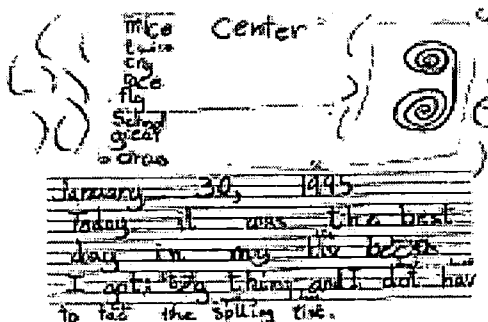 mice
Center
twice
cry
nice
fly
School
great
circus
January 30, 1995
Today it was the best
day in my life
I got big thing and I dot have
to tac the splling tist.